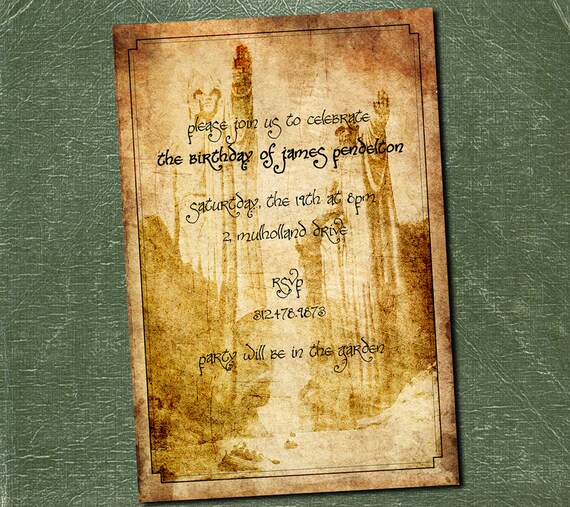 please join us to celebrate
the birthday of james pendelton
saturday, the 19th at 8pm
2 mulholland drive
rsvp
312.478.9873
party will be in the garden